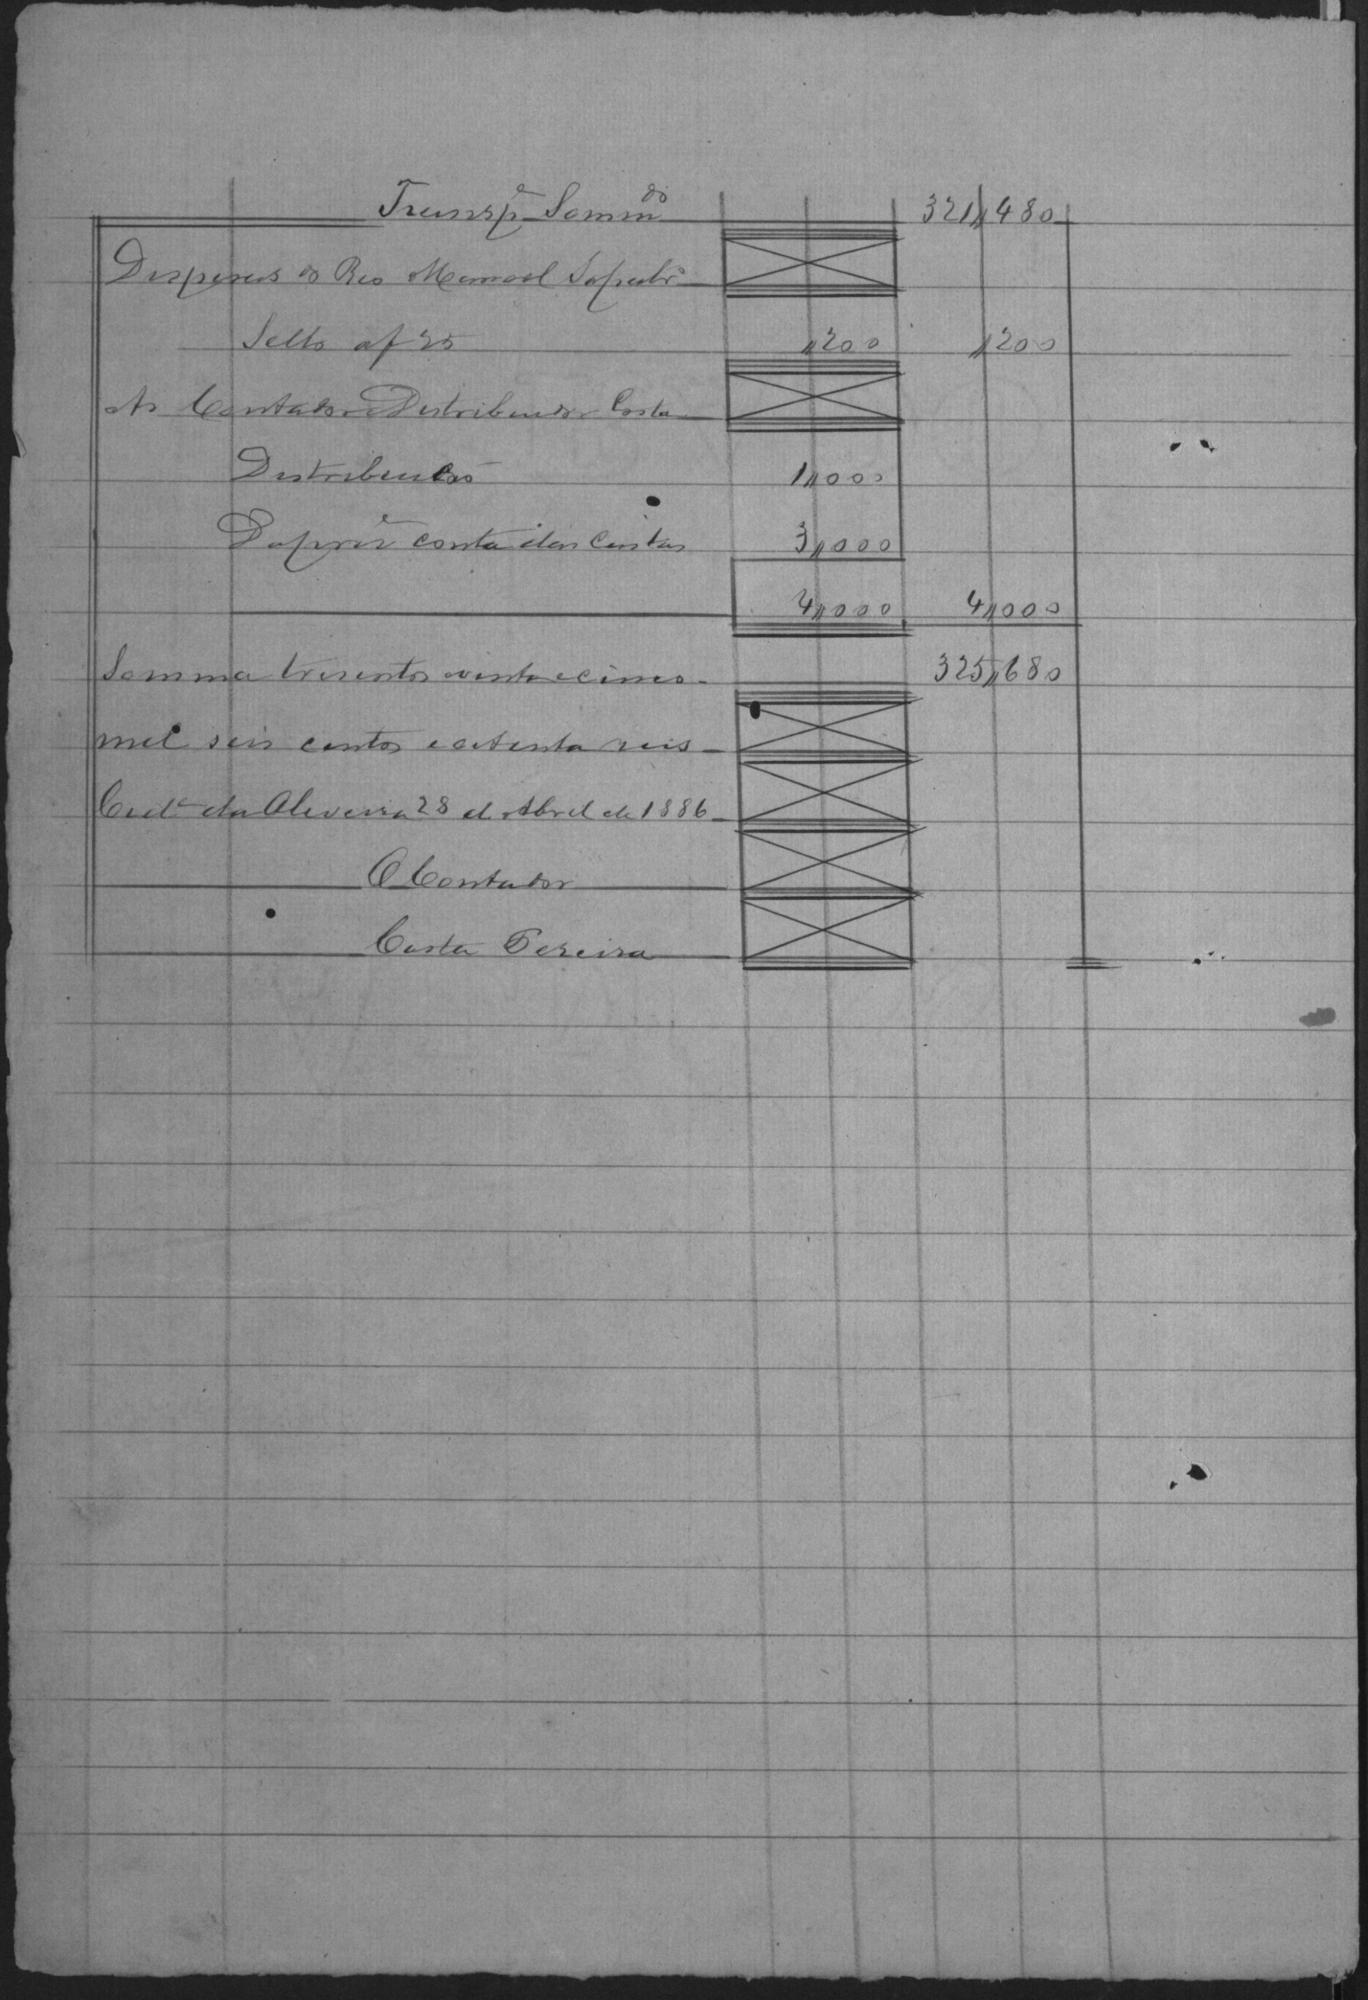 Transpe Sommdo 321,,480
Despesas do Reo Manoel
Sello af 25 ,,200 ,,200
Ao Contador Distribuidor Costa
Distribuição 1,,000
Da pre conta das custas 3,,000
4,,000 4,,000
Somma tresentos vinte e cinco 325,,680
mil seis centos e oitenta reis
Cide da Oliveira 28 de Abril de 1886
O Contador
Costa Pereira